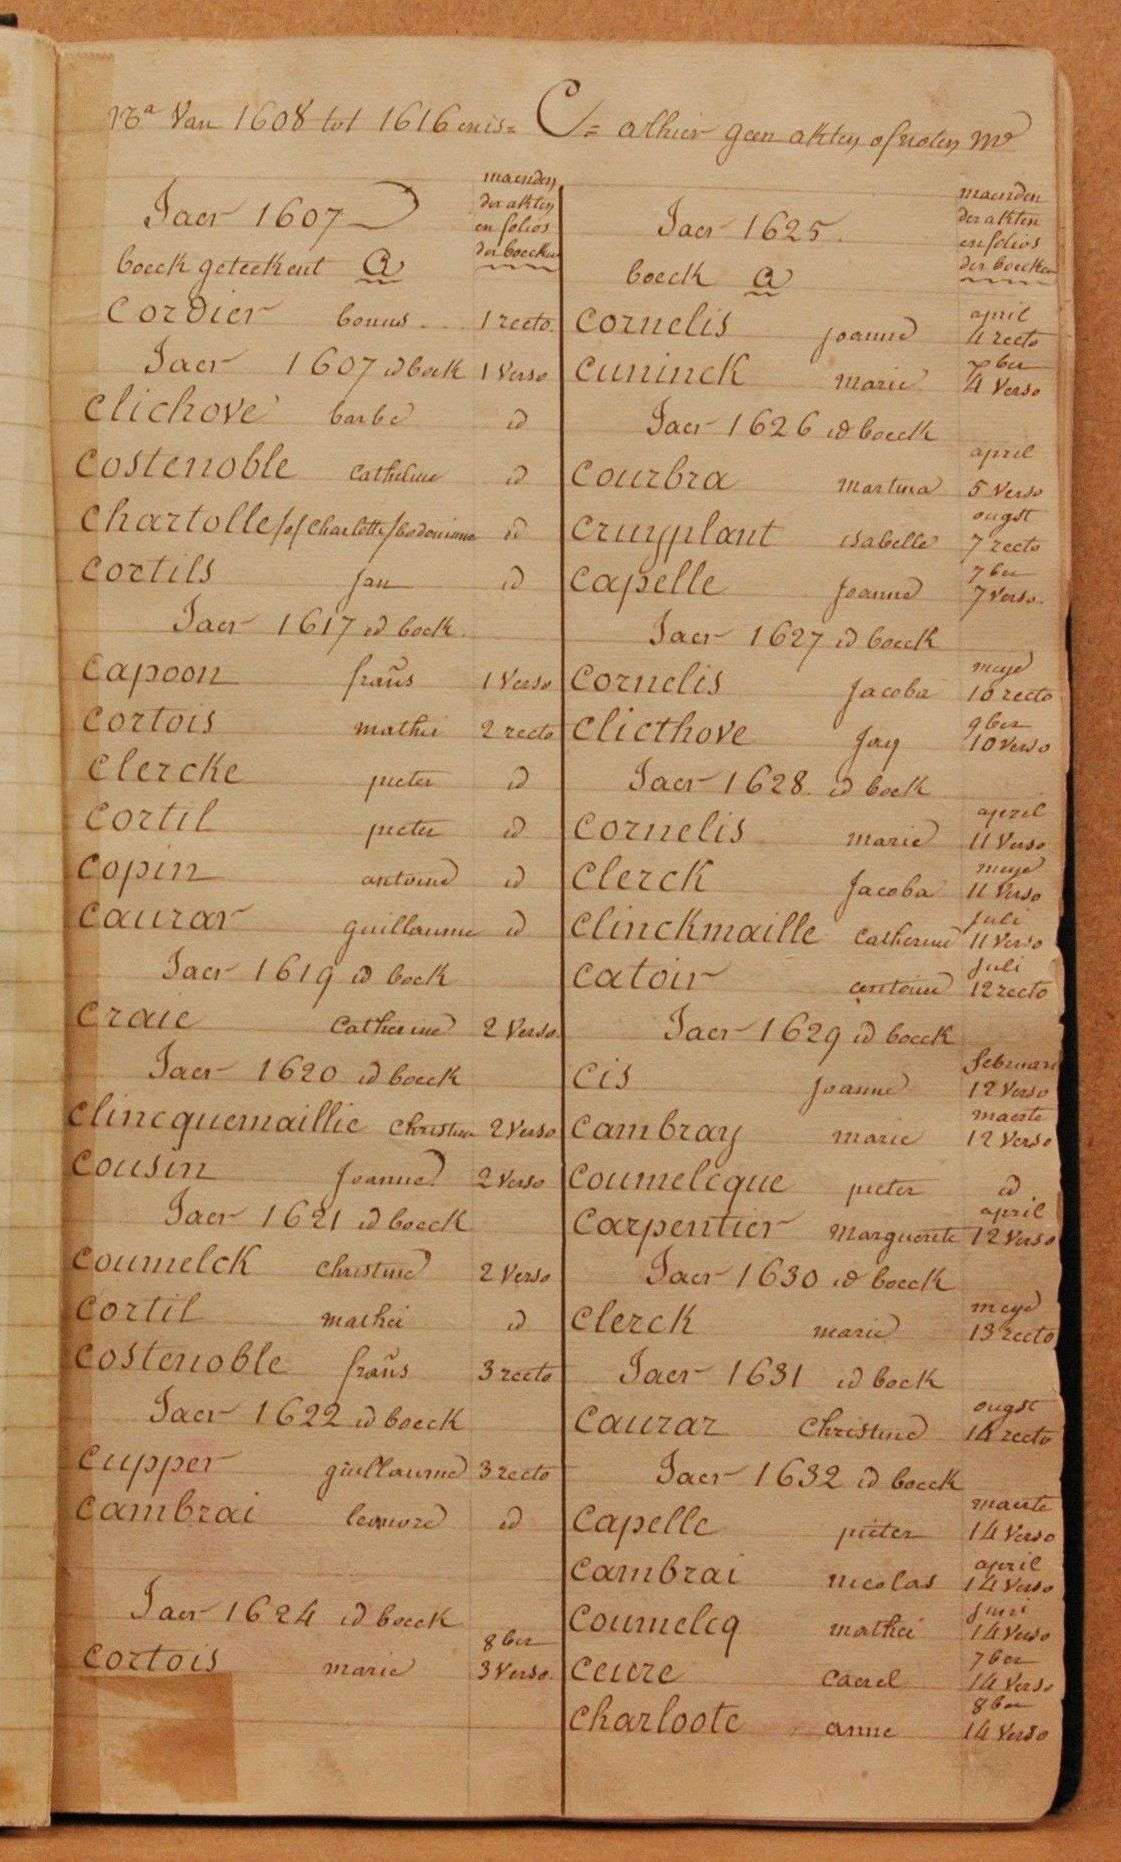 Na Van 1608 tot 1616 en is = C/= alhier geen akten of noten
Jaer 1607
maenden
der akten
en folios
der boecken
boeck geteekent a
Cordier bonus 1 recto
Jaer 1607 id boek 1 Verso
Clichove barbe id
Costenoble Catheline id
Chartolle /of Charlotte/ id
Cortils Jan id
Jaer 1617 id boek
Capoon frañs 1 Verso
Cortois mathei 2 recto
Clercke pieter id
Cortil pieter id
Copin antoine id
Caurar guillaume id
Jaer 1619 id boek
Craie Catherine 2 Verso
Jaer 1620 id boeck
Clincquemaillie Christine 2 Verso
Cousin Joanne 2 Verso
Jaer 1621 id boeck
Coumelck Christine 2 Verso
Cortil mathei id
Costenoble frañs 3 recto
Jaer 1622 id boeck
Cupper guillaume 3 recto
Cambrai leonore id
Jaer 1624 id boeck
8ber
Cortois marie 3 Verso
Jaer 1625
maenden
der akten
en folios
der boecken
boeck a
april
Cornelis Joanne 4 recto
7ber
Cuninck marie 4 Verso
Jaer 1626 id boeck
april
Courbra martina 5 Verso
ougst
Cruyplant isabelle 7 recto
7ber
Capelle Joanne 7 Verso
Jaer 1627 id boeck
meye
Cornelis Jacoba 10 recto
9ber
Clicthove Jan 10 Verso
Jaer 1628 id boek
april
Cornelis marie 11 Verso
meye
Clerck Jacoba 11 Verso
Juli
Clinckmaille Catherine 11 Verso
Juli
Catoir antoine 12 recto
Jaer 1629 id boeck
februari
Cis Joanne 12 Verso
maerte
Cambray marie 12 Verso
Coumelcque pieter id
april
Carpentier Marguerite 12 Verso
Jaer 1630 id boeck
meye
Clerck marie 13 recto
Jaer 1631 id boek
ougst
Caurar Christine 14 recto
Jaer 1632 id boeck
maerte
Capelle pieter 14 Verso
april
Cambrai nicolas 14 Verso
Juni
Coumelcq mathei 14 Verso
7ber
Ceure Caerel 14 Verso
8ber
Charloote anne 14 Verso